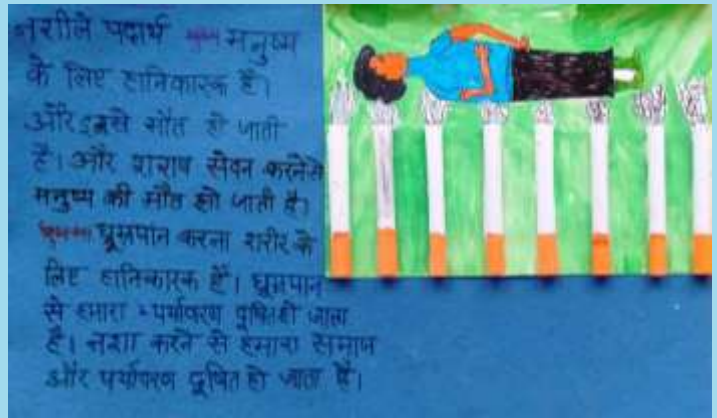 नशीले पदार्थ मनुष्य
के लिए हानिकारक है।
और इससे मौत हो जाती
है। और शराब सेवन करनेसे
मनुष्य की मौत हो जाती है।
धूम्रपान करना शरीर के
लिए हानिकारक है। धूम्रपान
से हमारा पर्यावरण दूषित हो जाता
है। नशा करने से हमारा समाज
और पर्यावरण दूषित हो जाता है।